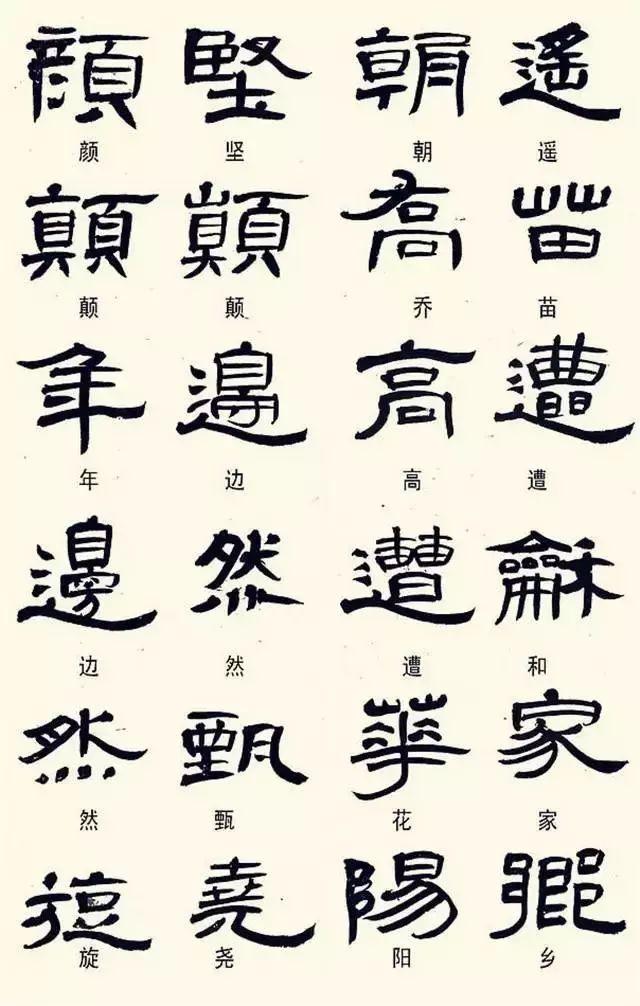 顏 堅 朝 遙
颜 坚 朝 遥
顛 顛 喬 苗
颠 颠 乔 苗
年 邊 高 遭
年 边 高 遭
邊 然 遭 龢
边 然 遭 和
然 甄 華 家
然 甄 花 家
旋 堯 陽 鄉
旋 尧 阳 乡